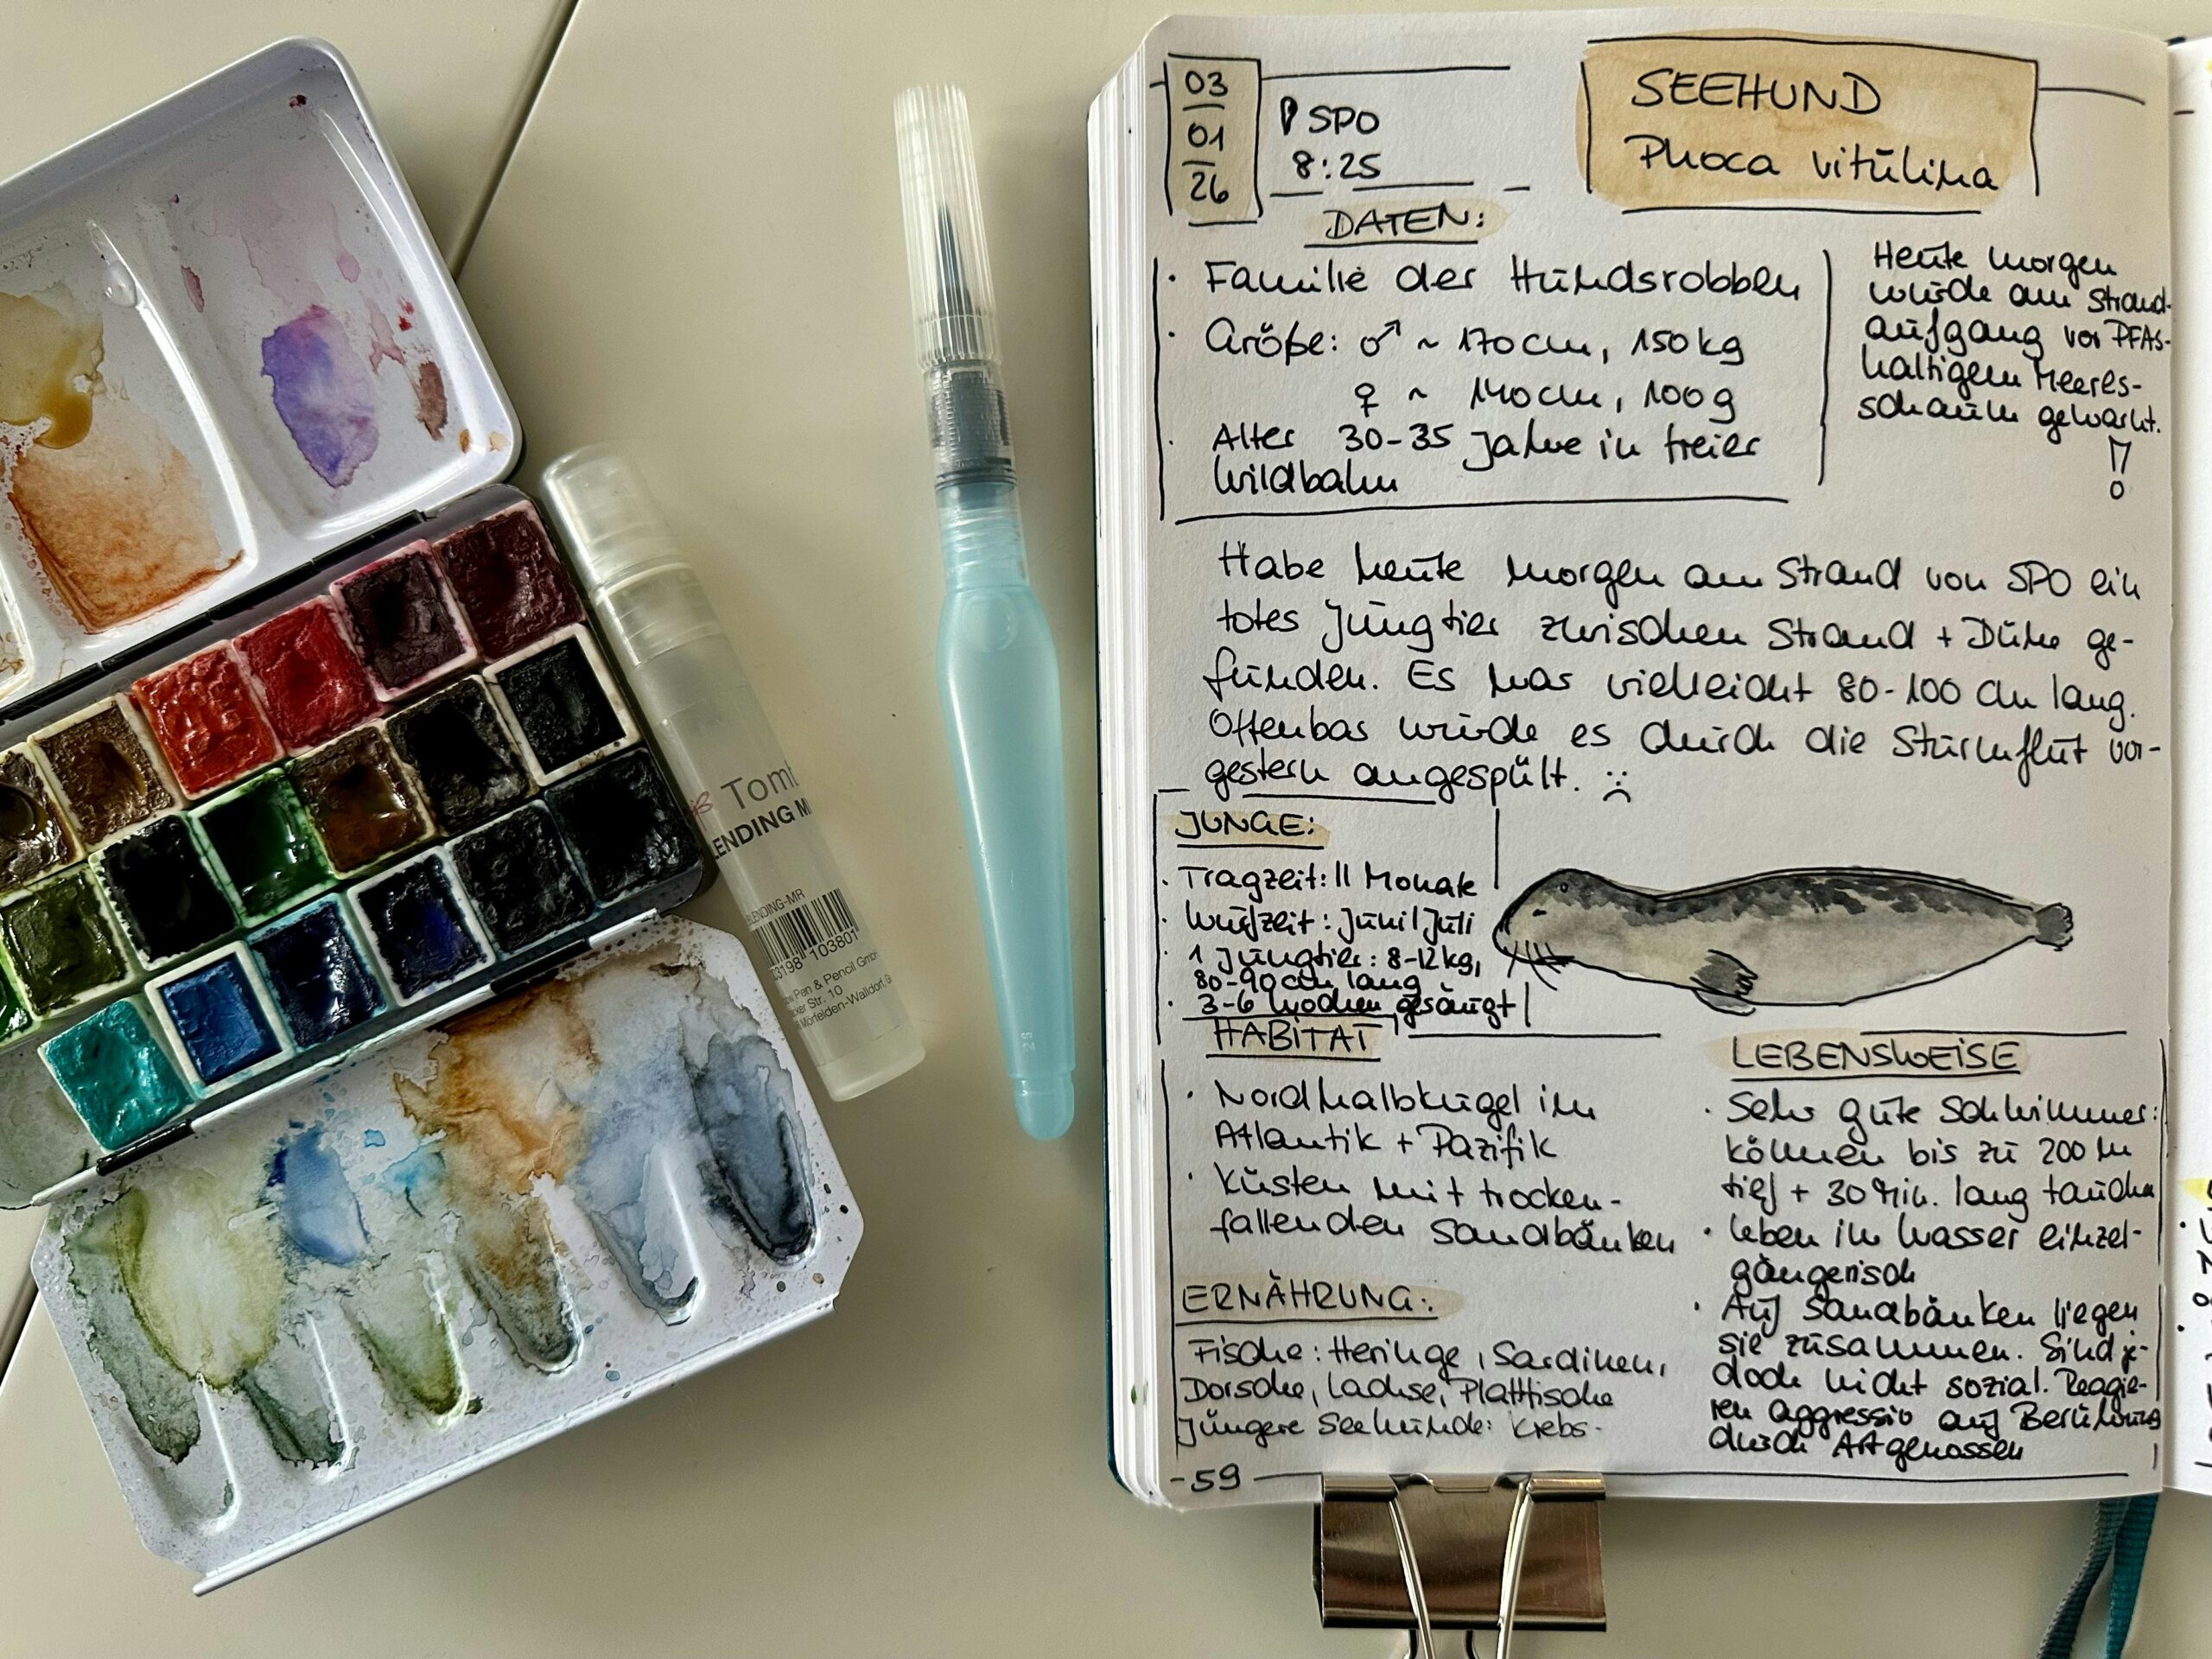 03
01
26
SPO
8:25
SEEHUND
Phoca vitulina
DATEN:
· Familie der Hundsrobben
· Größe: ♂ ~ 170 cm, 150 kg
♀ ~ 140 cm, 100 g
· Alter 30-35 Jahre in freier
Wildbahn
Heute morgen
wurde am Strand-
aufgang vor PFAS-
haltigem Meeres-
schaum gewarnt.
!
Habe heute morgen am Strand von SPO ein
totes Jungtier zwischen Strand + Düne ge-
funden. Es war vielleicht 80-100 cm lang.
Offenbar wurde es durch die Sturmflut vor-
gestern angespült. :(
JUNGE:
· Tragzeit: 11 Monate
· Wurfzeit: Juni/Juli
· 1 Jungtier: 8-12 kg,
80-90 cm lang
· 3-6 Wochen gesäugt
HABITAT
· Nordhalbkugel im
Atlantik + Pazifik
· Küsten mit trocken-
fallenden Sandbänken
ERNÄHRUNG:
Fische: Heringe, Sardinen,
Dorsche, Lachse, Plattfische
Jüngere Seehunde: Krebs-
LEBENSWEISE
· Sehr gute Schwimmer:
können bis zu 200 m
tief + 30 Min. lang tauchen
· leben im Wasser einzel-
gängerisch
· Auf Sandbänken liegen
sie zusammen. Sind je-
doch nicht sozial. Reagie-
ren aggressiv auf Berührung
durch Artgenossen
-59
Tomb
LENDING M
BLENDING-MR
103801
Pen & Pencil Gmb
Str. 10
Mörfelden-Walldorf, G